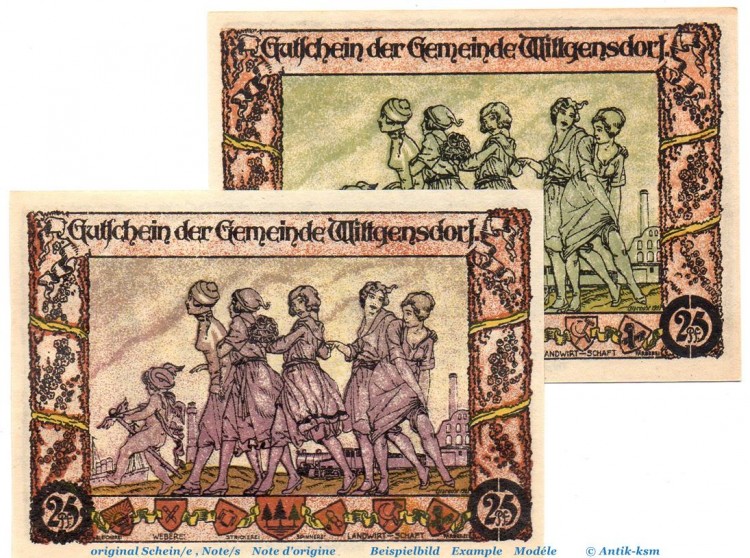 Gutschein der Gemeinde Wittgensdorf.
25
LANDWIRT–SCHAFT
Gutschein der Gemeinde Wittgensdorf.
25 25
WEBEREI STRICKEREI SPINNEREI LANDWIRT–SCHAFT
original Schein/e , Note/s Note d'origine Beispielbild Example Modéle © Antik-ksm